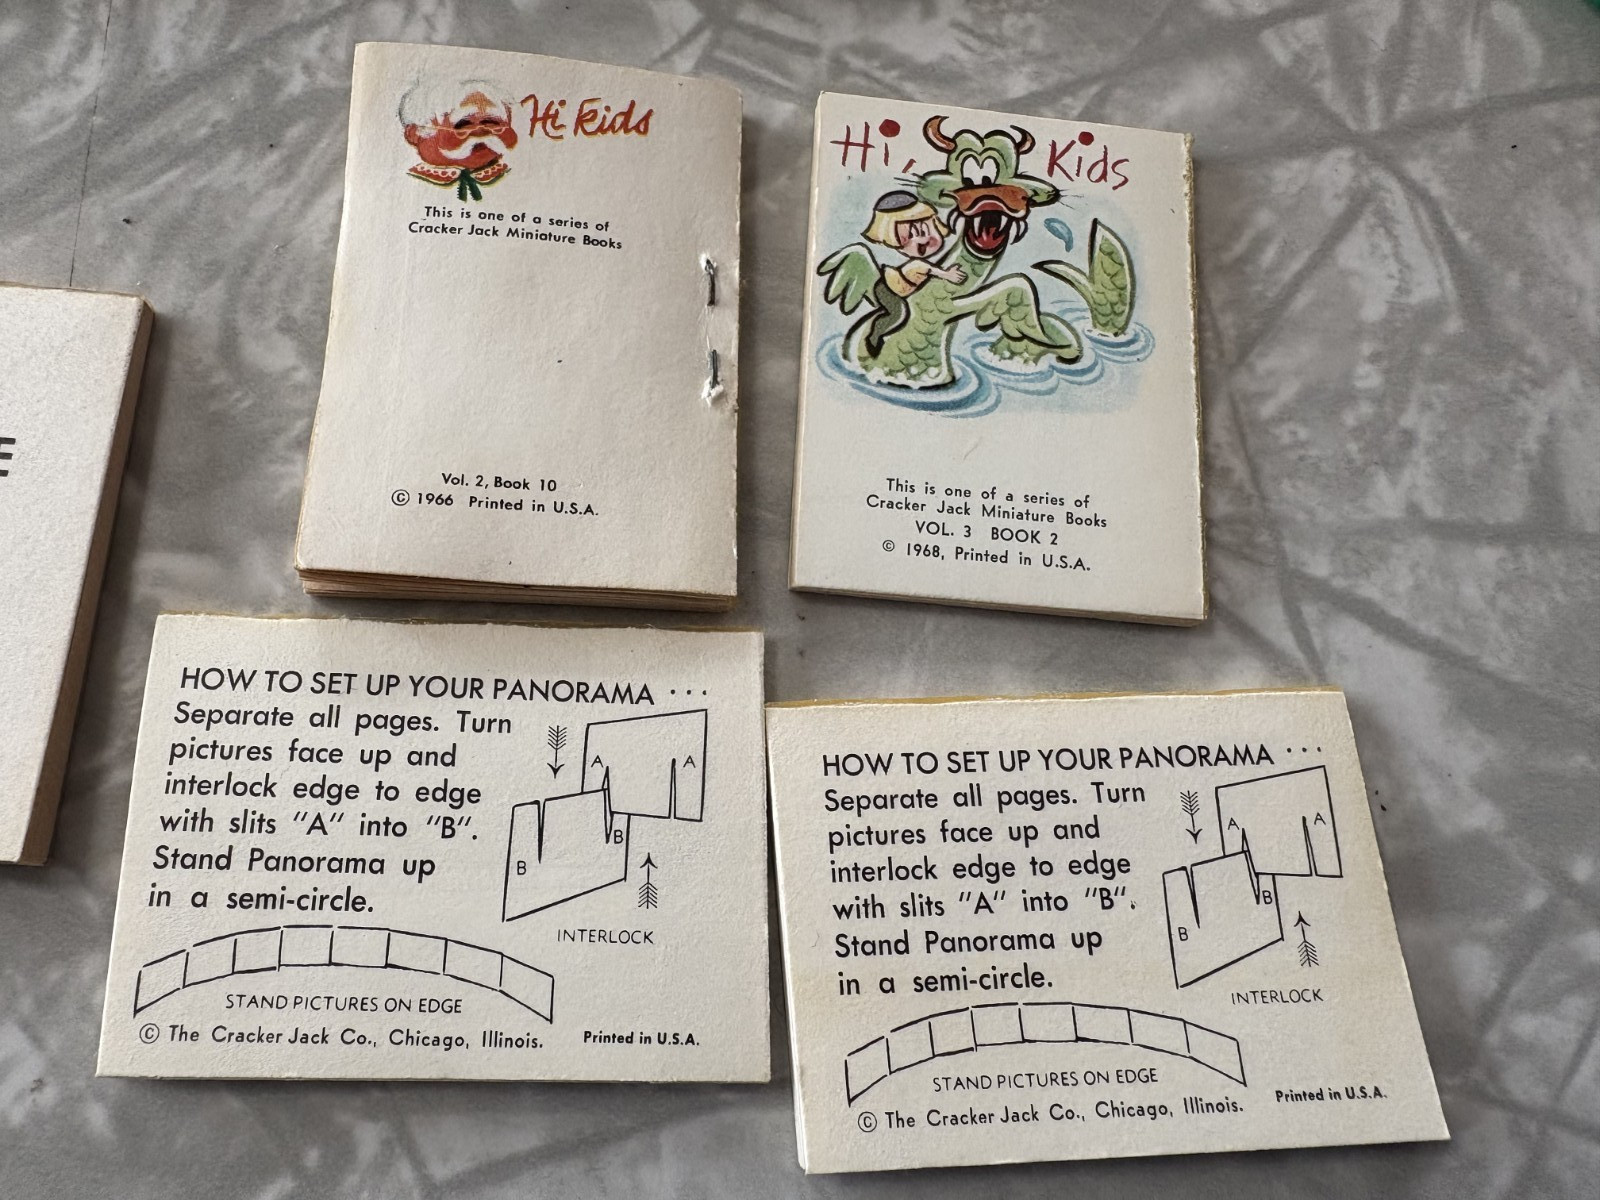 Hi Kids
This is one of a series of
Cracker Jack Miniature Books
Vol. 2, Book 10
© 1966 Printed in U.S.A.
Hi, Kids
This is one of a series of
Cracker Jack Miniature Books
VOL. 3 BOOK 2
© 1968, Printed in U.S.A.
E
HOW TO SET UP YOUR PANORAMA ···
Separate all pages. Turn
pictures face up and
interlock edge to edge
with slits "A" into "B".
Stand Panorama up
in a semi-circle.
A A
B B
INTERLOCK
STAND PICTURES ON EDGE
© The Cracker Jack Co., Chicago, Illinois. Printed in U.S.A.
HOW TO SET UP YOUR PANORAMA ···
Separate all pages. Turn
pictures face up and
interlock edge to edge
with slits "A" into "B".
Stand Panorama up
in a semi-circle.
A A
B B
INTERLOCK
STAND PICTURES ON EDGE
© The Cracker Jack Co., Chicago, Illinois. Printed in U.S.A.